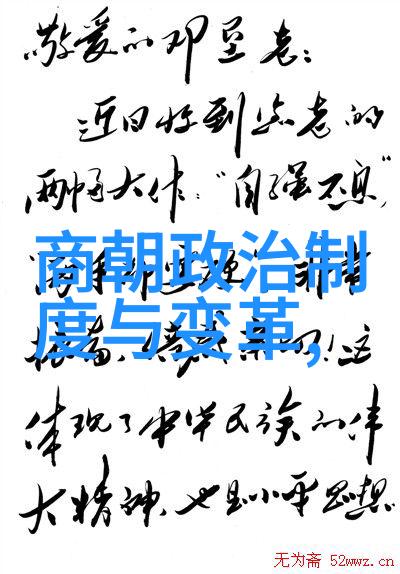 敬爱的邓垦老:
近日收到您老的
两幅大作:“自强不息”,
商朝政治制
度与变革,
这
体现了中华民族的伟
大精神,也是小平思想
无为斋 52wwz.cn